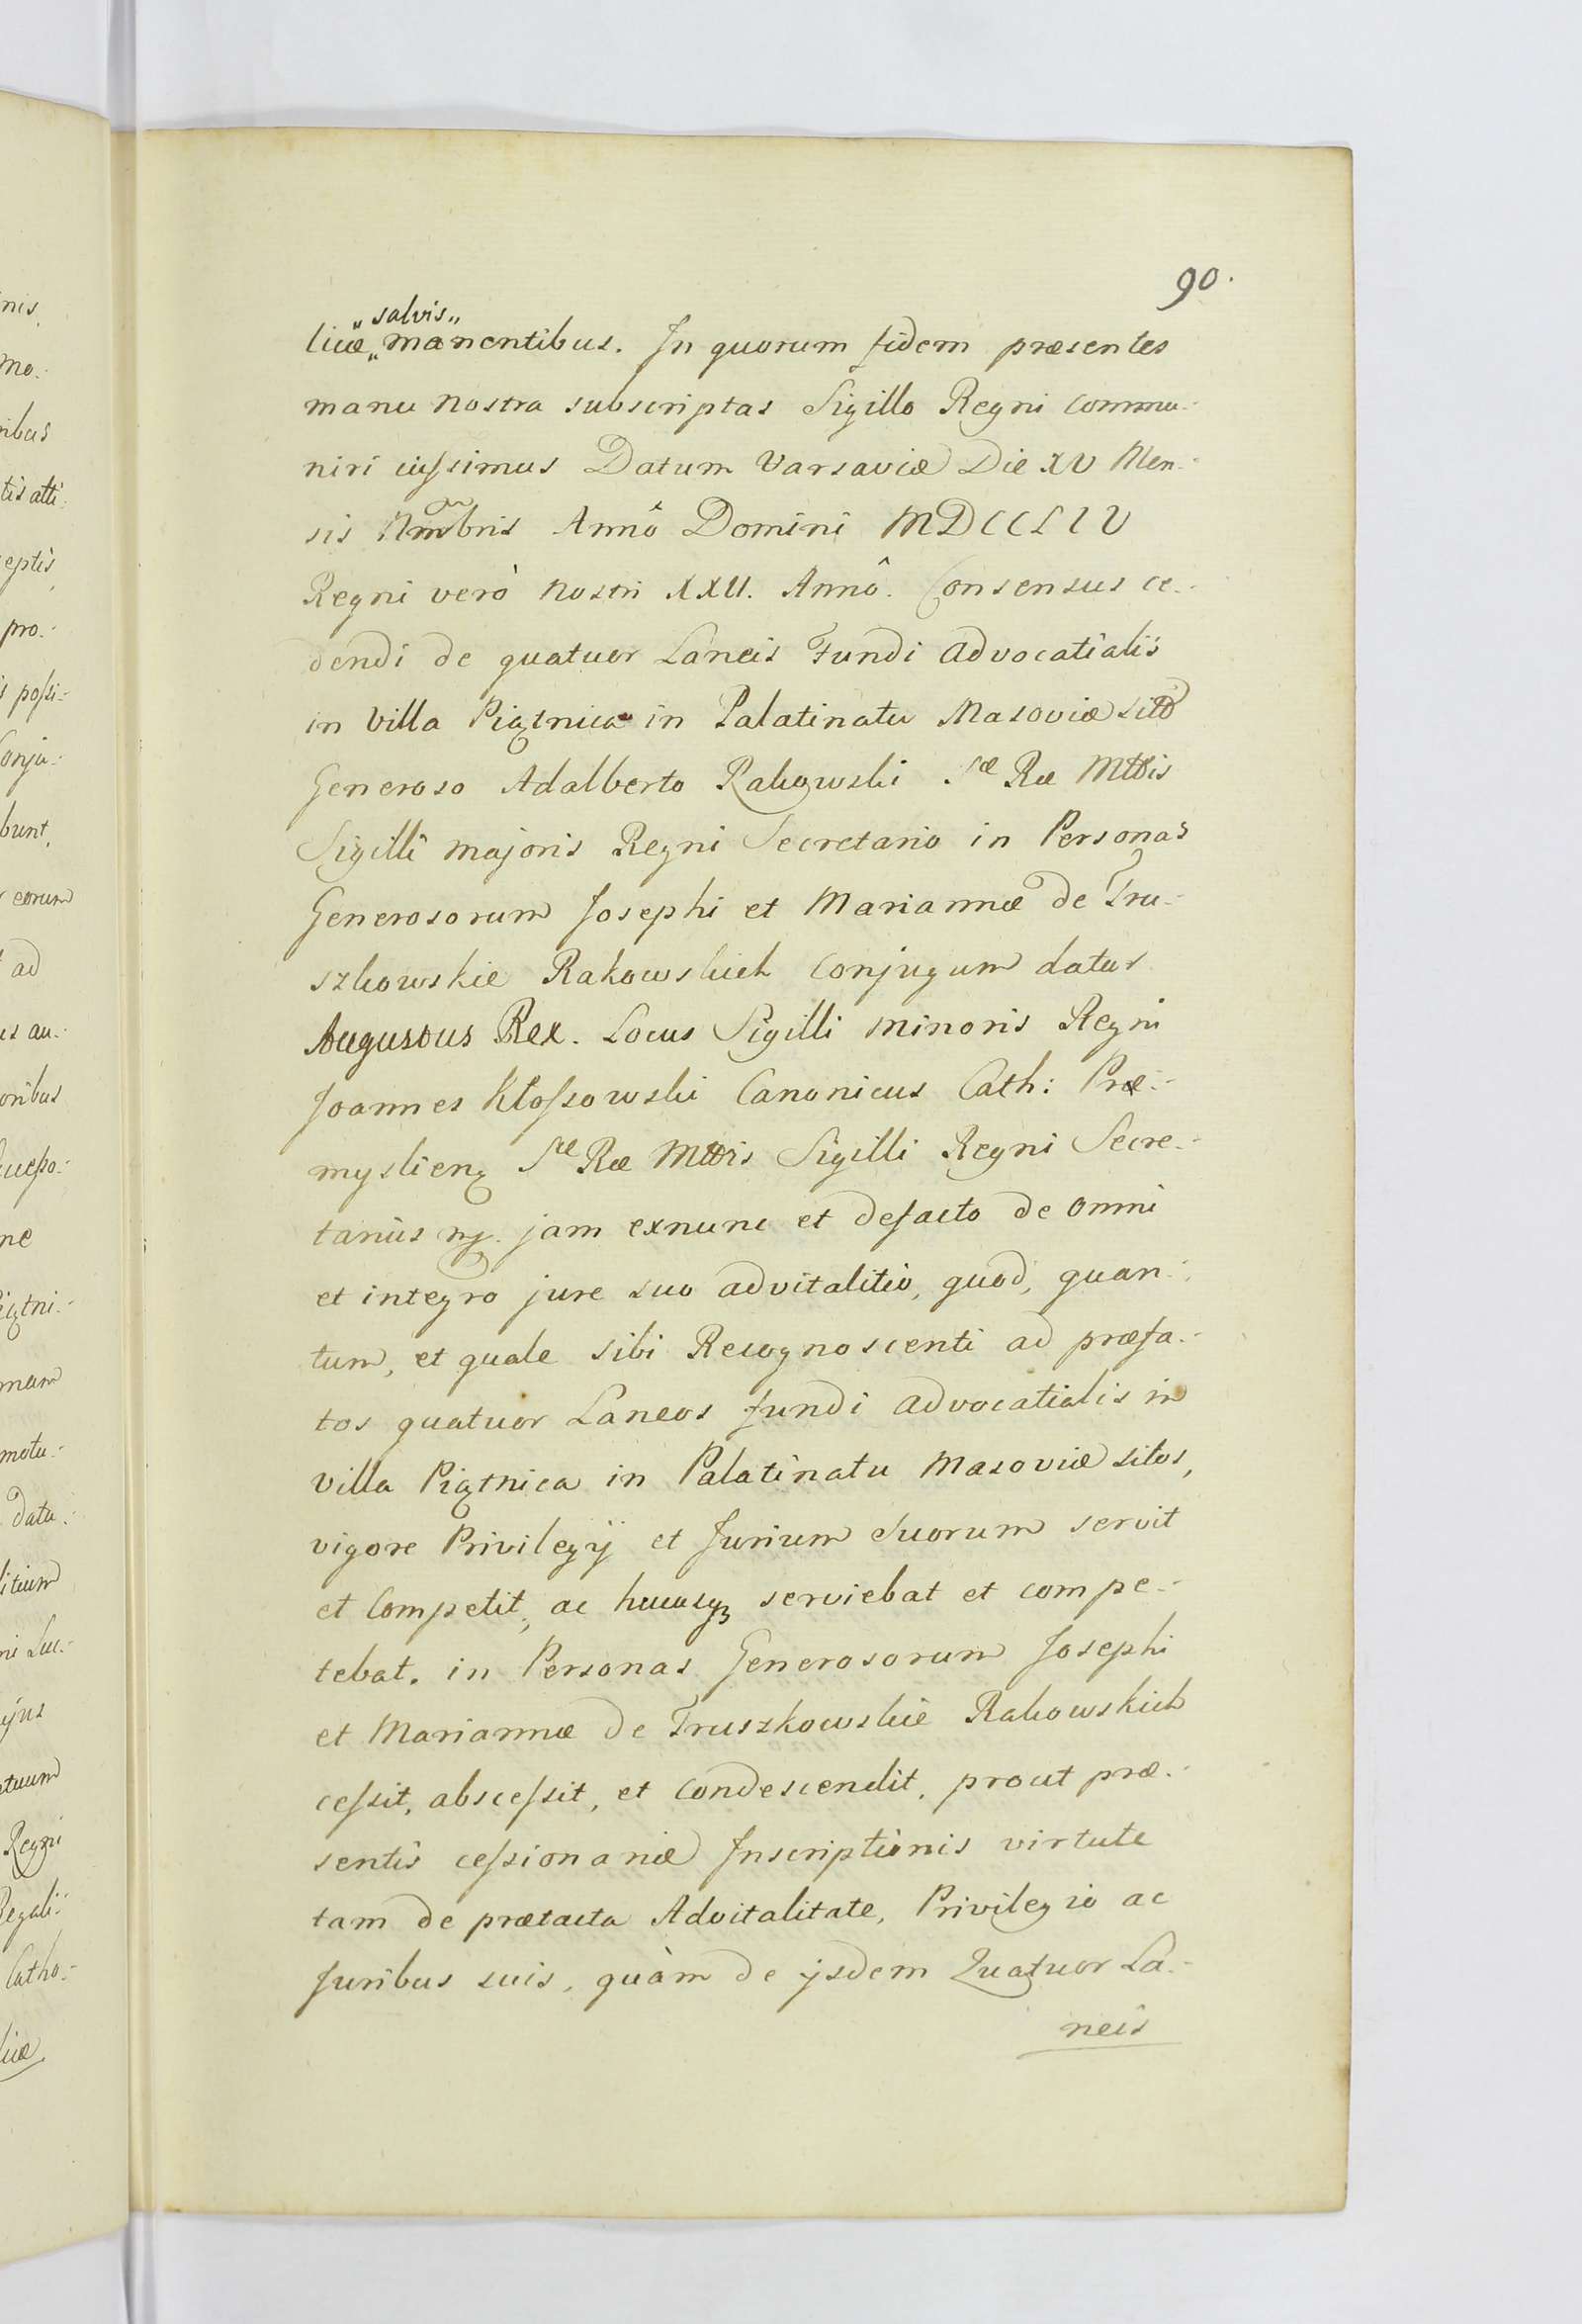 90.
„salvis„
licæ„ manentibus. In quorum fidem præsentes
manu nostra subscriptas Sigillo Regni commu-
niri iussimus Datum Varsaviæ Die XV Men-
sis Nmbris Annô Domini MDCCLIV
Regni verò nostri XXII. Annô. Consensus ce-
dendi de quatuor Laneis Fundi advocatialis
in Villa Piątnica in Palatinatu Masoviæ sito
Generoso Adalberto Rakowski Sæ Ræ Mttis
Sigilli majoris Regni Secretario in Personas
Generosorum Josephi et Mariannæ de Tru-
szkowskie Rakowskich conjugum datus
Augustus Rex. Locus Sigilli minoris Regni
Joannes Kłossowski Canonicus Cath: Præ-
mysliens Sæ Ræ Mttis Sigilli Regni Secre-
tarius jam exnunc et defacto de omni
et integro jure suo advitalitio, quod, quan-
tum, et quale sibi Recognoscenti ad præfa-
tos quatuor Laneos fundi advocatialis in
villa Piątnica in Palatinatu Masoviæ sitos,
vigore Privilegij et Jurium suorum servit
et Competit, ac hucusq3 serviebat et compe-
tebat. in Personas Generosorum Josephi
et Mariannæ de Truszkowskie Rakowskich
cessit, abscessit, et condescendit, prout præ-
sentis cessionariæ Inscriptionis virtute
tam de prætacta Advitalitate, Privilegio ac
Juribus suis, quàm de ijsdem Quatuor La-
neis